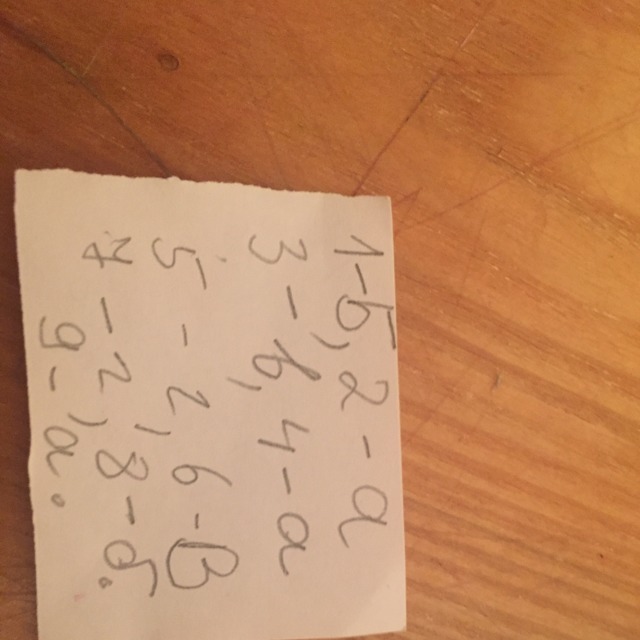 1-Б, 2-а
3-в, 4-а
5-г, 6-В
7-г, 8-б.
9-а.